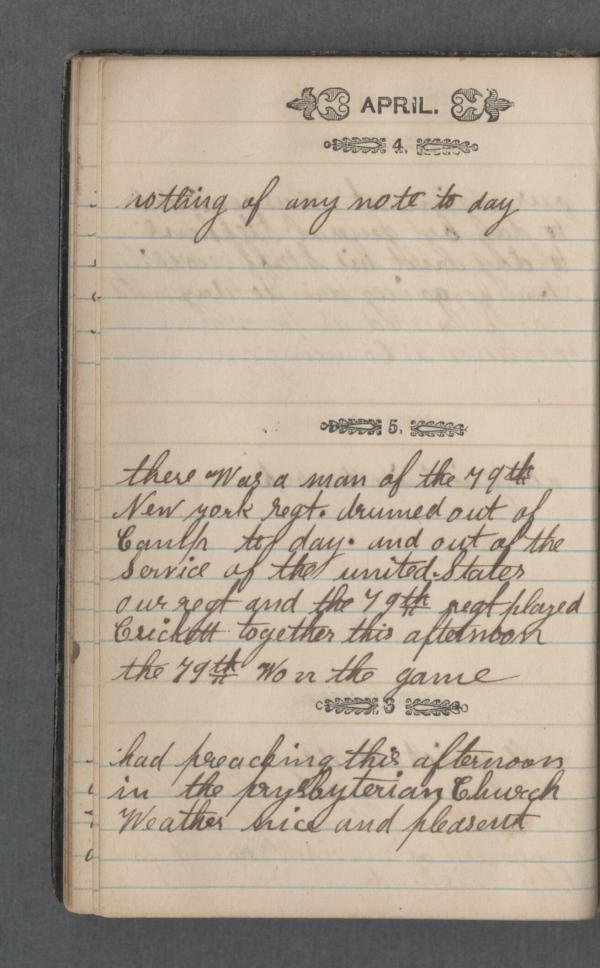 APRIL.
4.
nothing of any note to day
5.
there was a man of the 79th
New york regt. drumed out of
Camp to day. and out of the
Service of the united States
our regt and the 79th regt played
Crickett together this afternoon
the 79th Won the game
6
had preaching this afternoon
in the prysbyterian Church
Weather nice and pleasent